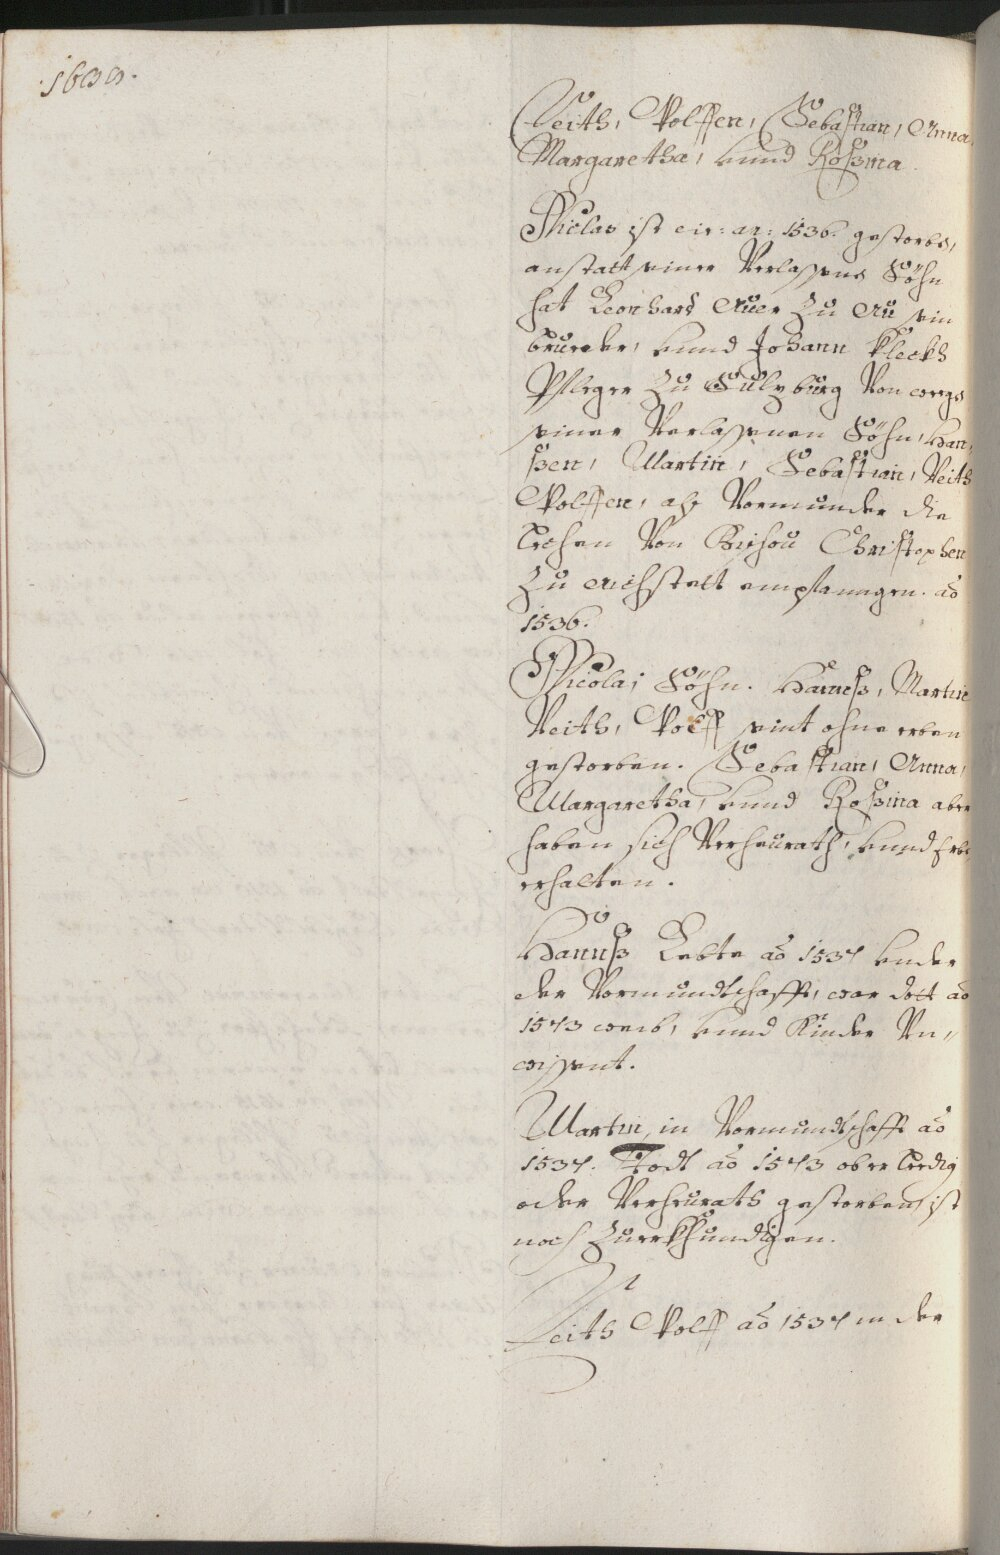 1633.
Veith, Wolffen, Sebastian, Anna,
Margaretha, vnnd Roßina.
Niclas ist cir: an: 1536. gestorbē,
anstatt seiner Verlassenē Söhn
hat Leonhard Auer Zu Au sein
bruder, vnnd Johann Fleckh
Pfleger Zu Sulzburg Von wegē
seiner Verlassenen Söhn, Han,
ßen, Martin, Sebastian, Veith
Wolffen, alß Vormunder die
Lehen Von Bischou Christophen
Zu Aichstett empfanngen. aō
1536.
Nicolai Söhn. Hannß, Martin
Veith, Wolff seint ohne erben
gestorben. Sebastian, Anna,
Margaretha, vnnd Roßina aber
haben sich Verheurath, vnnd Erbē
erhalten.
Hannß Lebte aō 1537 vnder
der Vormundtschafft, war dott aō
1573 weib, vnnd Kinder Vn"
wissent.
Martin, in Vormundtschafft aō
1537. Todt aō 1573 ob er Ledig
oder Verheurath gestorben, ist
noch Zuerkhundigen.
Veith Wolff aō 1537 in der